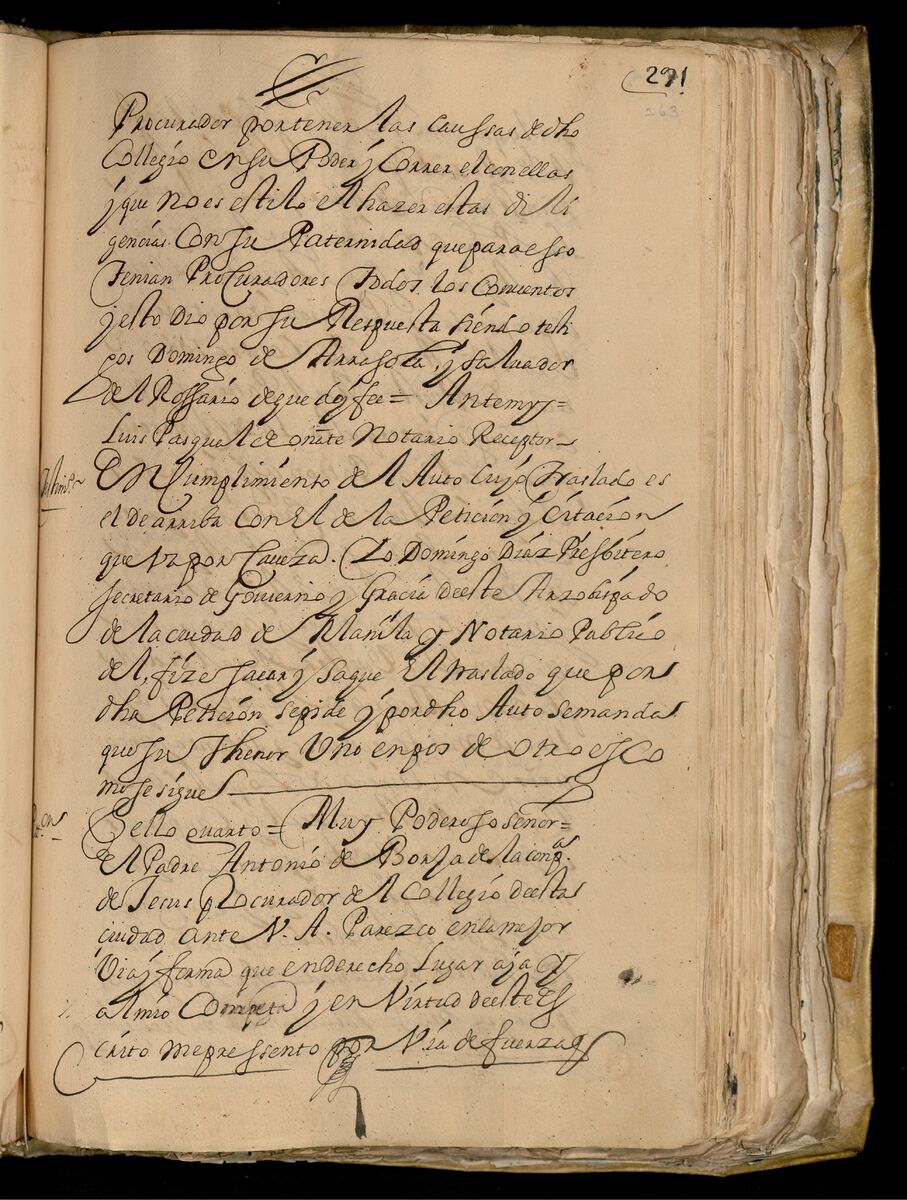 291
263
Procurador por tener las caussas de dho
Collegio en su Poder y Correr el con ellas
y que no es estilo el hazer estas dili
gencias Con su Paternidad que para esso
tenian Procuradores todos los Conventos
y esto dio por su Respuesta siendo testi
gos Domingo de Arrasola, y Salvador
del Rossario de que doy fee = Antemy =
Luis Pasqual de Notario Receptor
En Cumplimiento del Auto cuyo traslado es
el de arriba Con El de la Peticion y Citacion
que va por Caveza. Yo Domingo Diaz Presbitero
Secretario de Govierno y Gracia de este Arzobispado
de la ciudad de Manila y Notario Publico
del, fize sacar y saque El traslado que por
dha Peticion se pide y por dho Auto se manda
que su thenor Uno en pos de otro es co
mo se sigue
Sello quarto = Muy Poderoso señor =
el Padre Antonio de Borja de la compª.
de Jesus Procurador del Collegio de esta
ciudad ante V. A. Parezco en la mejor
Via y forma que en derecho Lugar aja y
al mio Competa y en Virtud de este Es
crito me pressento por Via de fuerza q